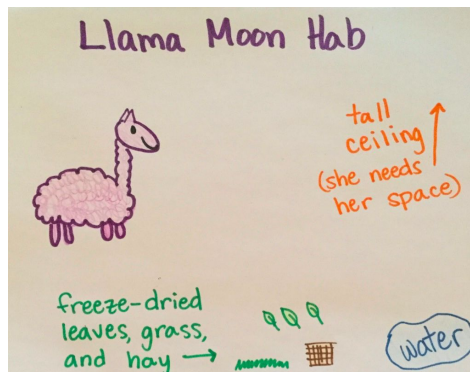 Llama Moon Hab
tall
ceiling
(she needs
her space)
freeze-dried
leaves, grass,
and hay
water